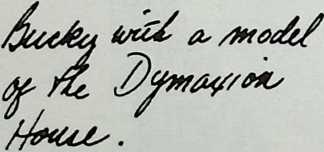 Bucky with a model
of the Dymaxion
House.